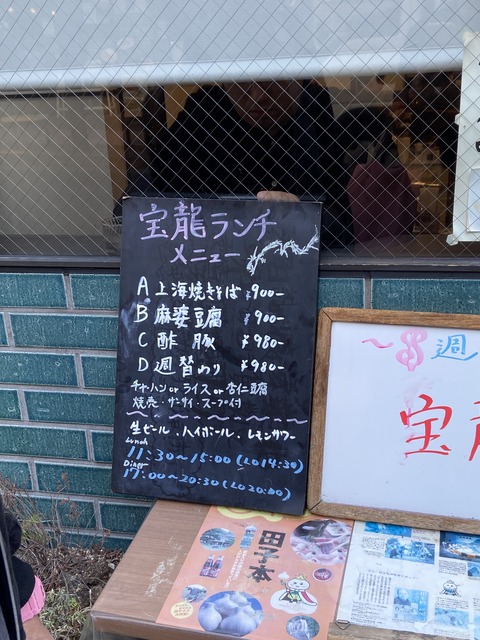 宝龍ランチ
メニュー
A 上海焼きそば ¥900-
B 麻婆豆腐 ¥900-
C 酢豚 ¥980-
D 週替わり ¥980-
チャーハン or ライス or 杏仁豆腐
焼売・ザーサイ・スープ付
生ビール、ハイボール、レモンサワー
Lunch
11:30~15:00 (LO14:30)
Dinner
17:00~20:30 (LO20:00)
~週
宝
田子本